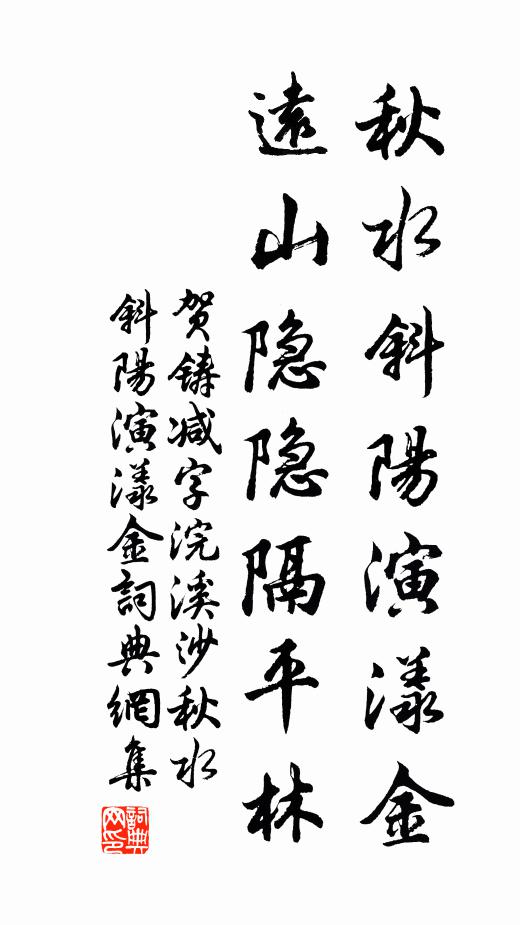 秋水斜陽演漾金
遠山隐隐隔平林
贺鑄减字浣溪沙秋水
斜陽演漾金詞典網集
詞典
网印